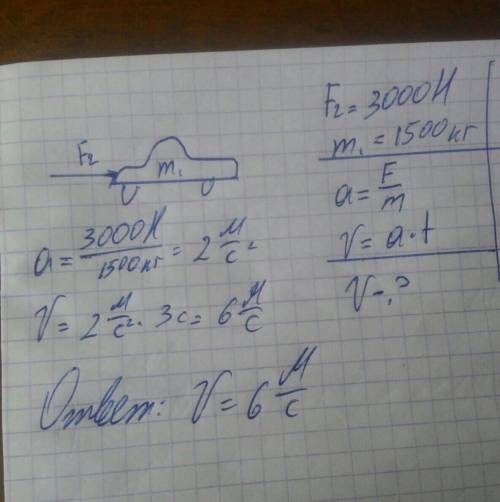 F₂ = 3000 Н
m₁ = 1500 кг
a = F/m
V = a · t
V - ?
F₂
m₁
a = 3000 Н / 1500 кг = 2 м/с²
V = 2 м/с² · 3с = 6 м/с
Ответ: V = 6 м/с